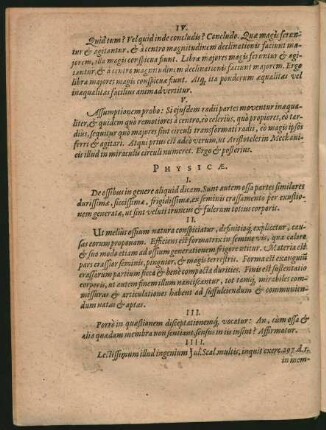 IV.
Quid tum? Vel quid inde concludis? Concludo. Quæ magis ferun-
tur & agitantur, & à centro magnitudinem declinationis faciunt ma-
jorem, ibi magis conspicua sunt. Libra majores magis feruntur & agi-
tantur, & à centro magnitudinem declinationis faciunt majorem. Ergò
libræ majores magis conspicuæ sunt. Atq, ita ponderum æqualitas vel
inæqualitas facilius animadvertitur.
V.
Assumptionem probo: Si ejusdem radii partes moventur inæqua-
liter, & quidem quò remotiores à centro, eò celerius, quò propiores, eò tar-
dius, sequitur quò majores sint circuli transformati radii, eò magis ipsos
ferri & agitari. Atqui prius est adeò verum, ut Aristoteles in Mechani-
cis illud in miraculis circuli numeret. Ergò & posterius.
PHYSICÆ.
I.
De ossibus in genere aliquid dicam. Sunt autem ossa partes similares
durissimæ, siccissimæ, frigidissimæ, ex seminis crassamento per exustio-
nem generatæ, ut sint veluti truncus & fulcrum totius corporis.
II.
Ut melius ossium natura conspiciatur, definitioq, explicetur, cau-
sas eorum proponam. Efficiens est formatrix in seminevis, una calore
& sno modo etiam ad ossium generationem frigore utitur. Materia est
pars crassior seminis, pinguior, & magis terrestris. Forma est exanguium
crassarum partium sicca & benè compacta durities. Finis est sustentatio
corporis, ut autem finem illum nanciscantur, tot tamq, mirabiles com-
missuras & articulationes habent ad suffulciendum & communien-
dum natas & aptas.
III.
Porrò in quæstionem disceptationemq, vocatur: An, cum ossa &
alia quædam membra non sentiant, sensus in iis insint? Affirmatur.
IIII.
Lectissimum illud ingenium Jul. Scal. multis, inquit exerc. 297. d. 5.
in mem-